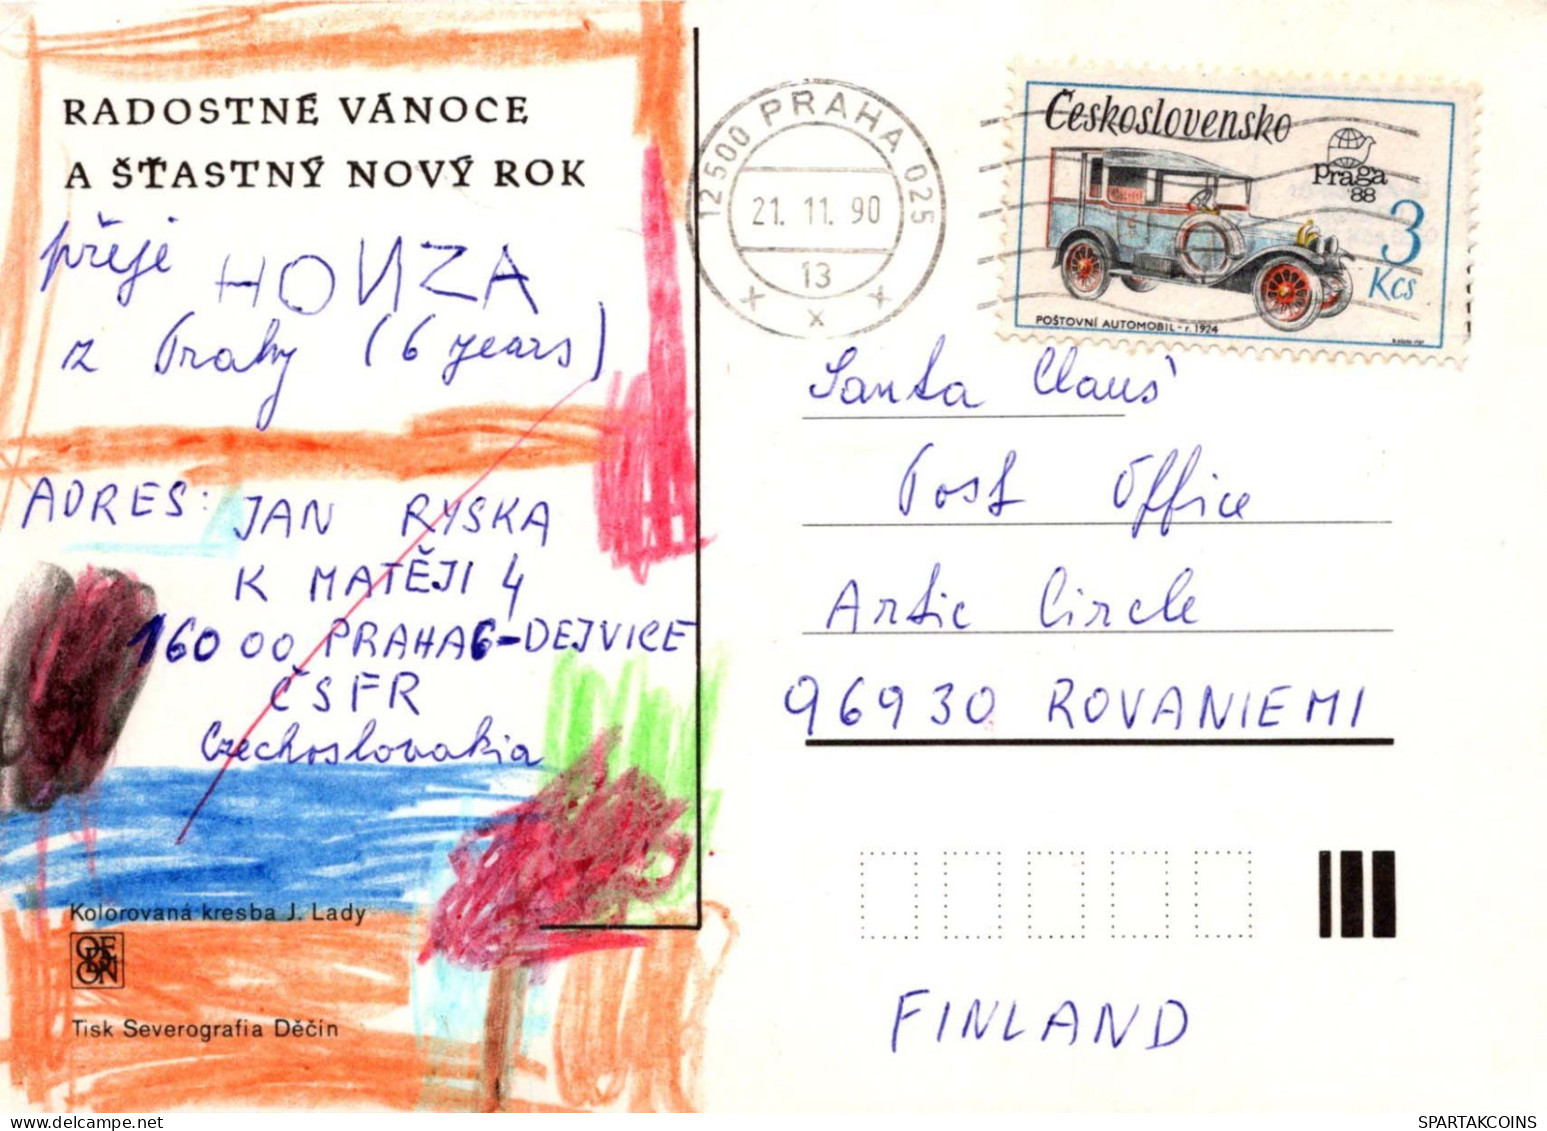 RADOSTNÉ VÁNOCE
A ŠŤASTNÝ NOVÝ ROK
přeje HONZA
z Prahy (6 years)
ADRES: JAN RYSKA
K MATĚJI 4
160 00 PRAHA 6-DEJVICE
ČSFR
Czechoslovakia
Kolorovaná kresba J. Lady
ODEON
Tisk Severografia Děčín
12500 PRAHA 025
21. 11. 90
13
x x x
Československo
praga
'88
3
Kčs
POŠTOVNÍ AUTOMOBIL - r. 1924
Santa Claus'
Post Office
Artic Circle
96930 ROVANIEMI
FINLAND
SPARTAKCOINS